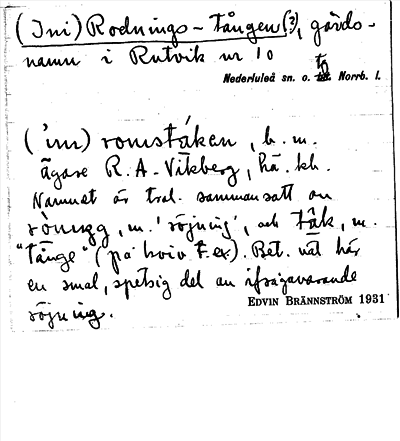 (Ini) Rodnings-tången(?), gårds-
namn i Rutvik nr 10
Nederluleå sn. o. tg Norrb. l.
('ını) romstáken, b. m.
ägare R. A. Vikberg, hå. kh.
Namnet är trol. sammansatt av
rònıŋg, m. 'röjning', och tåk, m.
"tånge" (på kniv t.ex.). Bet. väl här
en smal, spetsig del av ifrågavarande
röjning.
EDVIN BRÄNNSTRÖM 1931